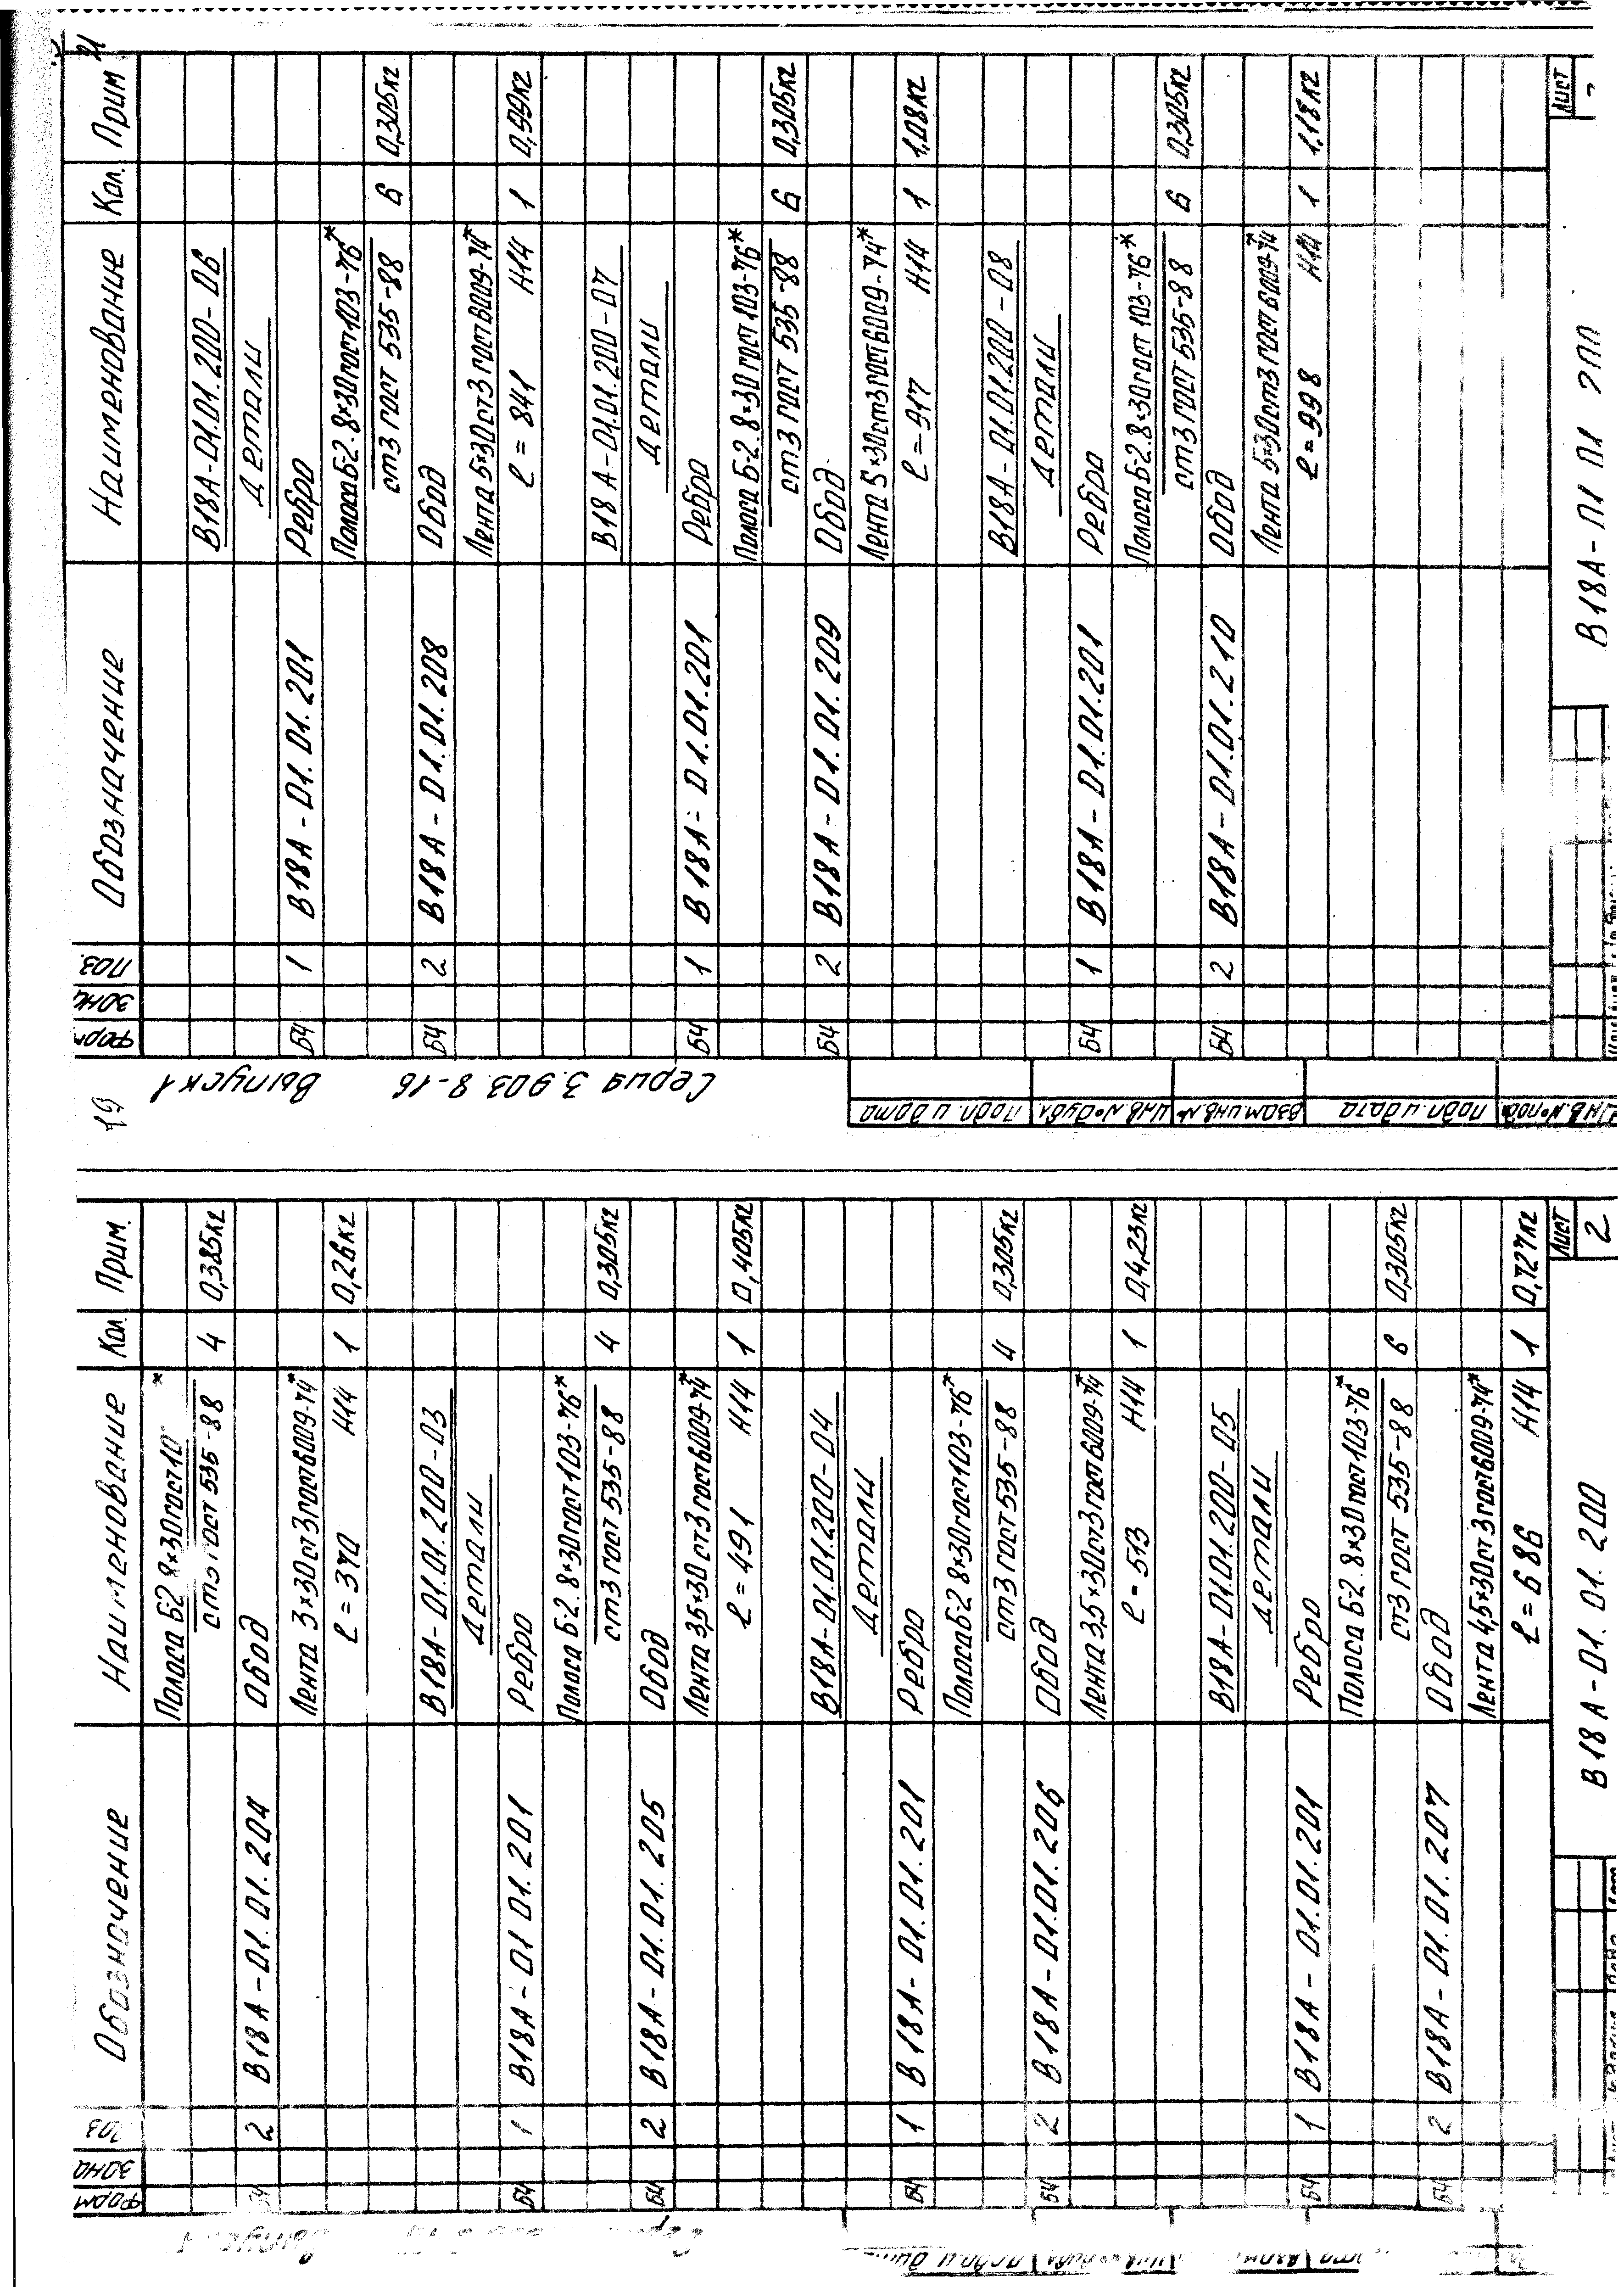 21
19
Серия 3.903.9-16 Выпуск 1
Форм Зона Поз. Обозначение Наименование Кол. Прим
В18А-01.01.200-06
Детали
Б4 1 В18А-01.01.201 Ребро
Полоса Б-2.8×30 гост 103-76*
ст3 гост 535-88 6 0,305кг
Б4 2 В18А-01.01.208 Обод
Лента 5×30 ст3 гост 6009-74*
ℓ=841 Н14 1 0,99кг
В18А-01.01.200-07
Детали
Б4 1 В18А-01.01.201 Ребро
Полоса Б-2.8×30 гост 103-76*
ст3 гост 535-88 6 0,305кг
Б4 2 В18А-01.01.209 Обод
Лента 5×30 ст3 гост 6009-74*
ℓ=917 Н14 1 1,08кг
В18А-01.01.200-08
Детали
Б4 1 В18А-01.01.201 Ребро
Полоса Б-2.8×30 гост 103-76*
ст3 гост 535-88 6 0,305кг
Б4 2 В18А-01.01.210 Обод
Лента 5×30 ст3 гост 6009-74*
ℓ=998 Н14 1 1,18кг
Подп. и дата
Инв.№дубл.
Взам инв.№
Подп. и дата
Инв.№подл
В18А-01 01 200
Лист
Форм Зона Обозначение Наименование Кол. Прим.
Полоса Б-2 8×30 гост 10 *
ст3 гост 535-88 4 0,385кг
Б4 2 В18А-01.01.204 Обод
Лента 3×30 ст3 гост 6009-74*
ℓ=370 Н14 1 0,26кг
В18А-01.01.200-03
Детали
Б4 1 В18А-01 01.201 Ребро
Полоса Б-2.8×30 гост 103-76*
ст3 гост 535-88 4 0,305кг
Б4 2 В18А-01.01.205 Обод
Лента 3,5×30 ст3 гост 6009-74*
ℓ=491 Н14 1 0,405кг
В18А-01.01.200-04
Детали
Б4 1 В18А-01.01.201 Ребро
Полоса Б-2 8×30 гост 103-76*
ст3 гост 535-88 4 0,305кг
Б4 2 В18А-01.01.206 Обод
Лента 3,5×30 ст3 гост 6009-74*
ℓ=513 Н14 1 0,4,23кг
В18А-01.01.200-05
Детали
Б4 1 В18А-01.01.201 Ребро
Полоса Б-2.8×30 гост 103-76*
ст3 гост 535-88 6 0,305кг
Б4 2 В18А-01.01.207 Обод
Лента 4,5×30 ст3 гост 6009-74*
ℓ=686 Н14 1 0,727кг
В18А-01.01.200
Лист
2